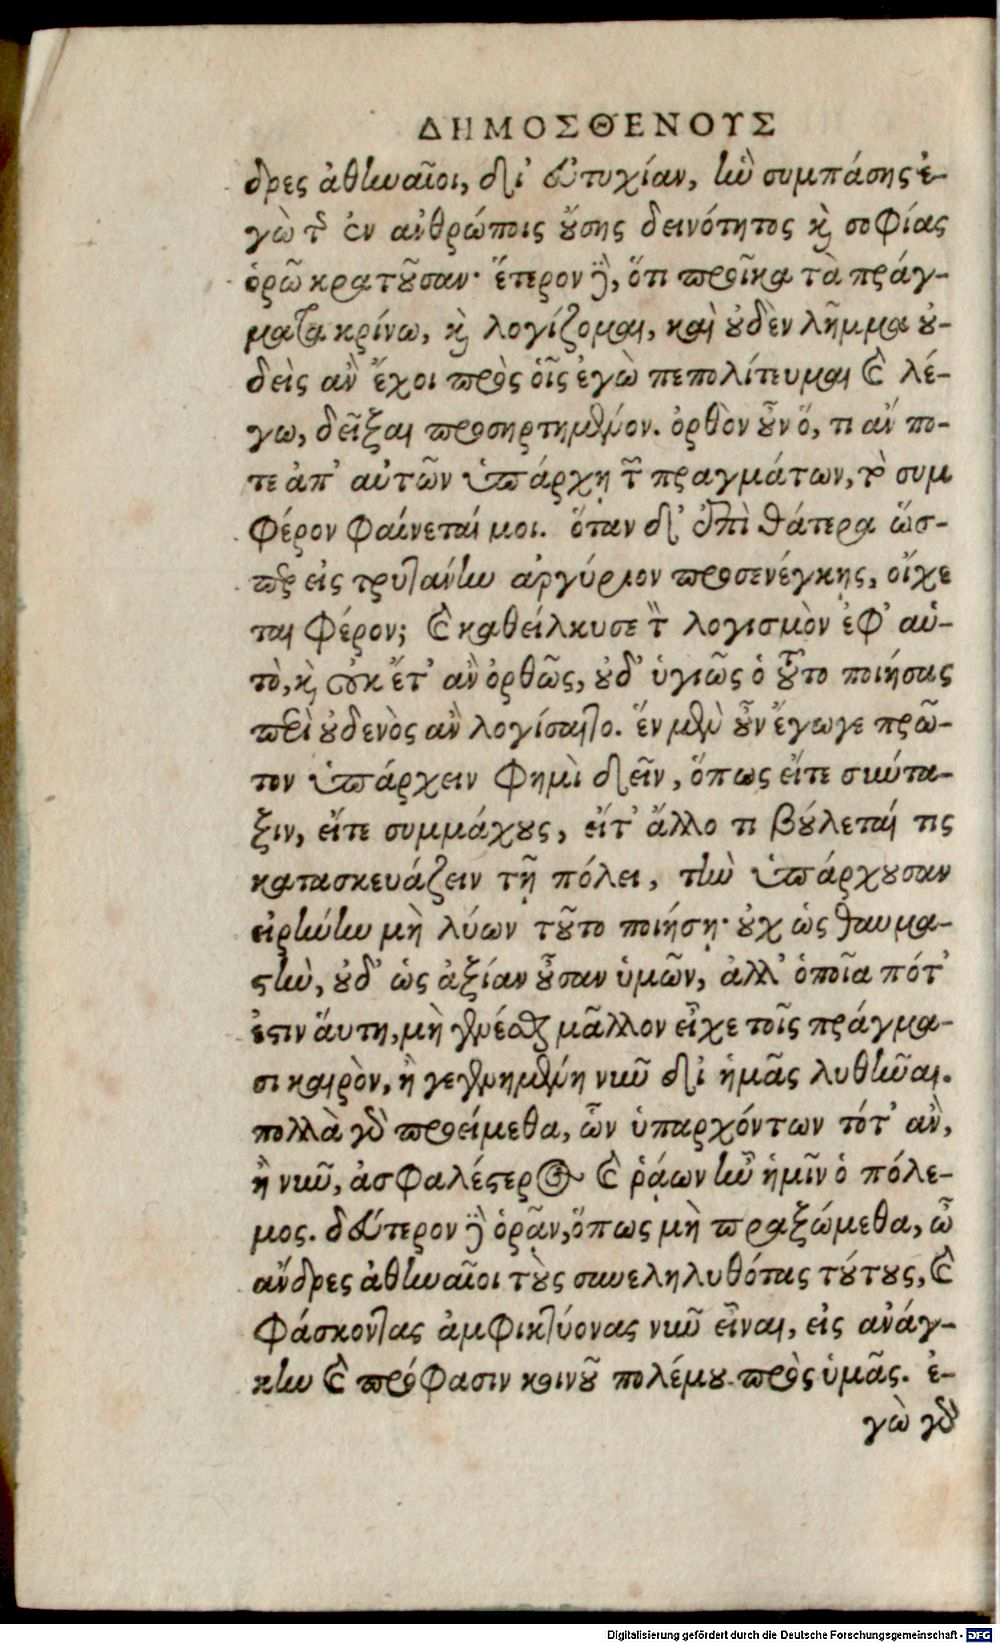 ΔΗΜΟΣΘΕΝΟΥΣ
δρες ἀθηναῖοι, δι' εὐτυχίαν, ἣν συμπάσης ἐ-
γὼ τῆς ἐν ἀνθρώποις οὔσης δεινότητος καὶ σοφίας
ὁρῶ κρατοῦσαν· ἕτερον δὲ, ὅτι προῖκα τὰ πράγ-
ματα κρίνω, καὶ λογίζομαι, καὶ οὐδὲν λῆμμα οὐ-
δεὶς ἂν ἔχοι πρὸς οἷς ἐγὼ πεπολίτευμαι καὶ λέ-
γω, δεῖξαι προσηρτημένον. ὀρθὸν οὖν ὅ, τι ἄν πο-
τε ἀπ' αὐτῶν ὑπάρχῃ τῶν πραγμάτων, τὸ συμ
φέρον φαίνεταί μοι. ὅταν δ' ἐπὶ θάτερα ὥσ-
περ εἰς τρυτάνην ἀργύριον προσενέγκῃς, οἴχε
ται φέρον; καὶ καθείλκυσε τὸν λογισμὸν ἐφ' αὑ-
τὸ, καὶ οὐκ ἔτ' ἂν ὀρθῶς, οὐδ' ὑγιῶς ὁ τοῦτο ποιήσας
περὶ οὐδενὸς ἂν λογίσαιτο. ἕν μὲν οὖν ἔγωγε πρῶ-
τον ὑπάρχειν φημὶ δεῖν, ὅπως εἴτε σύντα-
ξιν, εἴτε συμμάχους, εἴτ' ἄλλο τι βούλεταί τις
κατασκευάζειν τῇ πόλει, τὴν ὑπάρχουσαν
εἰρήνην μὴ λύων τοῦτο ποιήσῃ· οὐχ ὡς θαυμα-
στὴν, οὐδ' ὡς ἀξίαν οὖσαν ὑμῶν, ἀλλ' ὁποῖα πότ'
ἐστιν ἅυτη, μὴ γενέσθαι μᾶλλον εἶχε τοῖς πράγμα-
σι καιρὸν, ἢ γεγενημένη νῦν δι' ἡμᾶς λυθῆναι.
πολλὰ γὰρ προείμεθα, ὧν ὑπαρχόντων τότ' ἂν,
ἢ νῦν, ἀσφαλέστερος καὶ ῥᾴων ἦν ἡμῖν ὁ πόλε-
μος. δεύτερον δὲ ὁρᾶν, ὅπως μὴ πραξώμεθα, ὦ
ἄνδρες ἀθηναῖοι τοὺς συνεληλυθότας τούτους, καὶ
φάσκοντας ἀμφικτύονας νῦν εἶναι, εἰς ἀνάγ-
κην καὶ πρόφασιν κοινοῦ πολέμου πρὸς ὑμᾶς. ἐ-
γὼ γὰρ
Digitalisierung gefördert durch die Deutsche Forschungsgemeinschaft - DFG